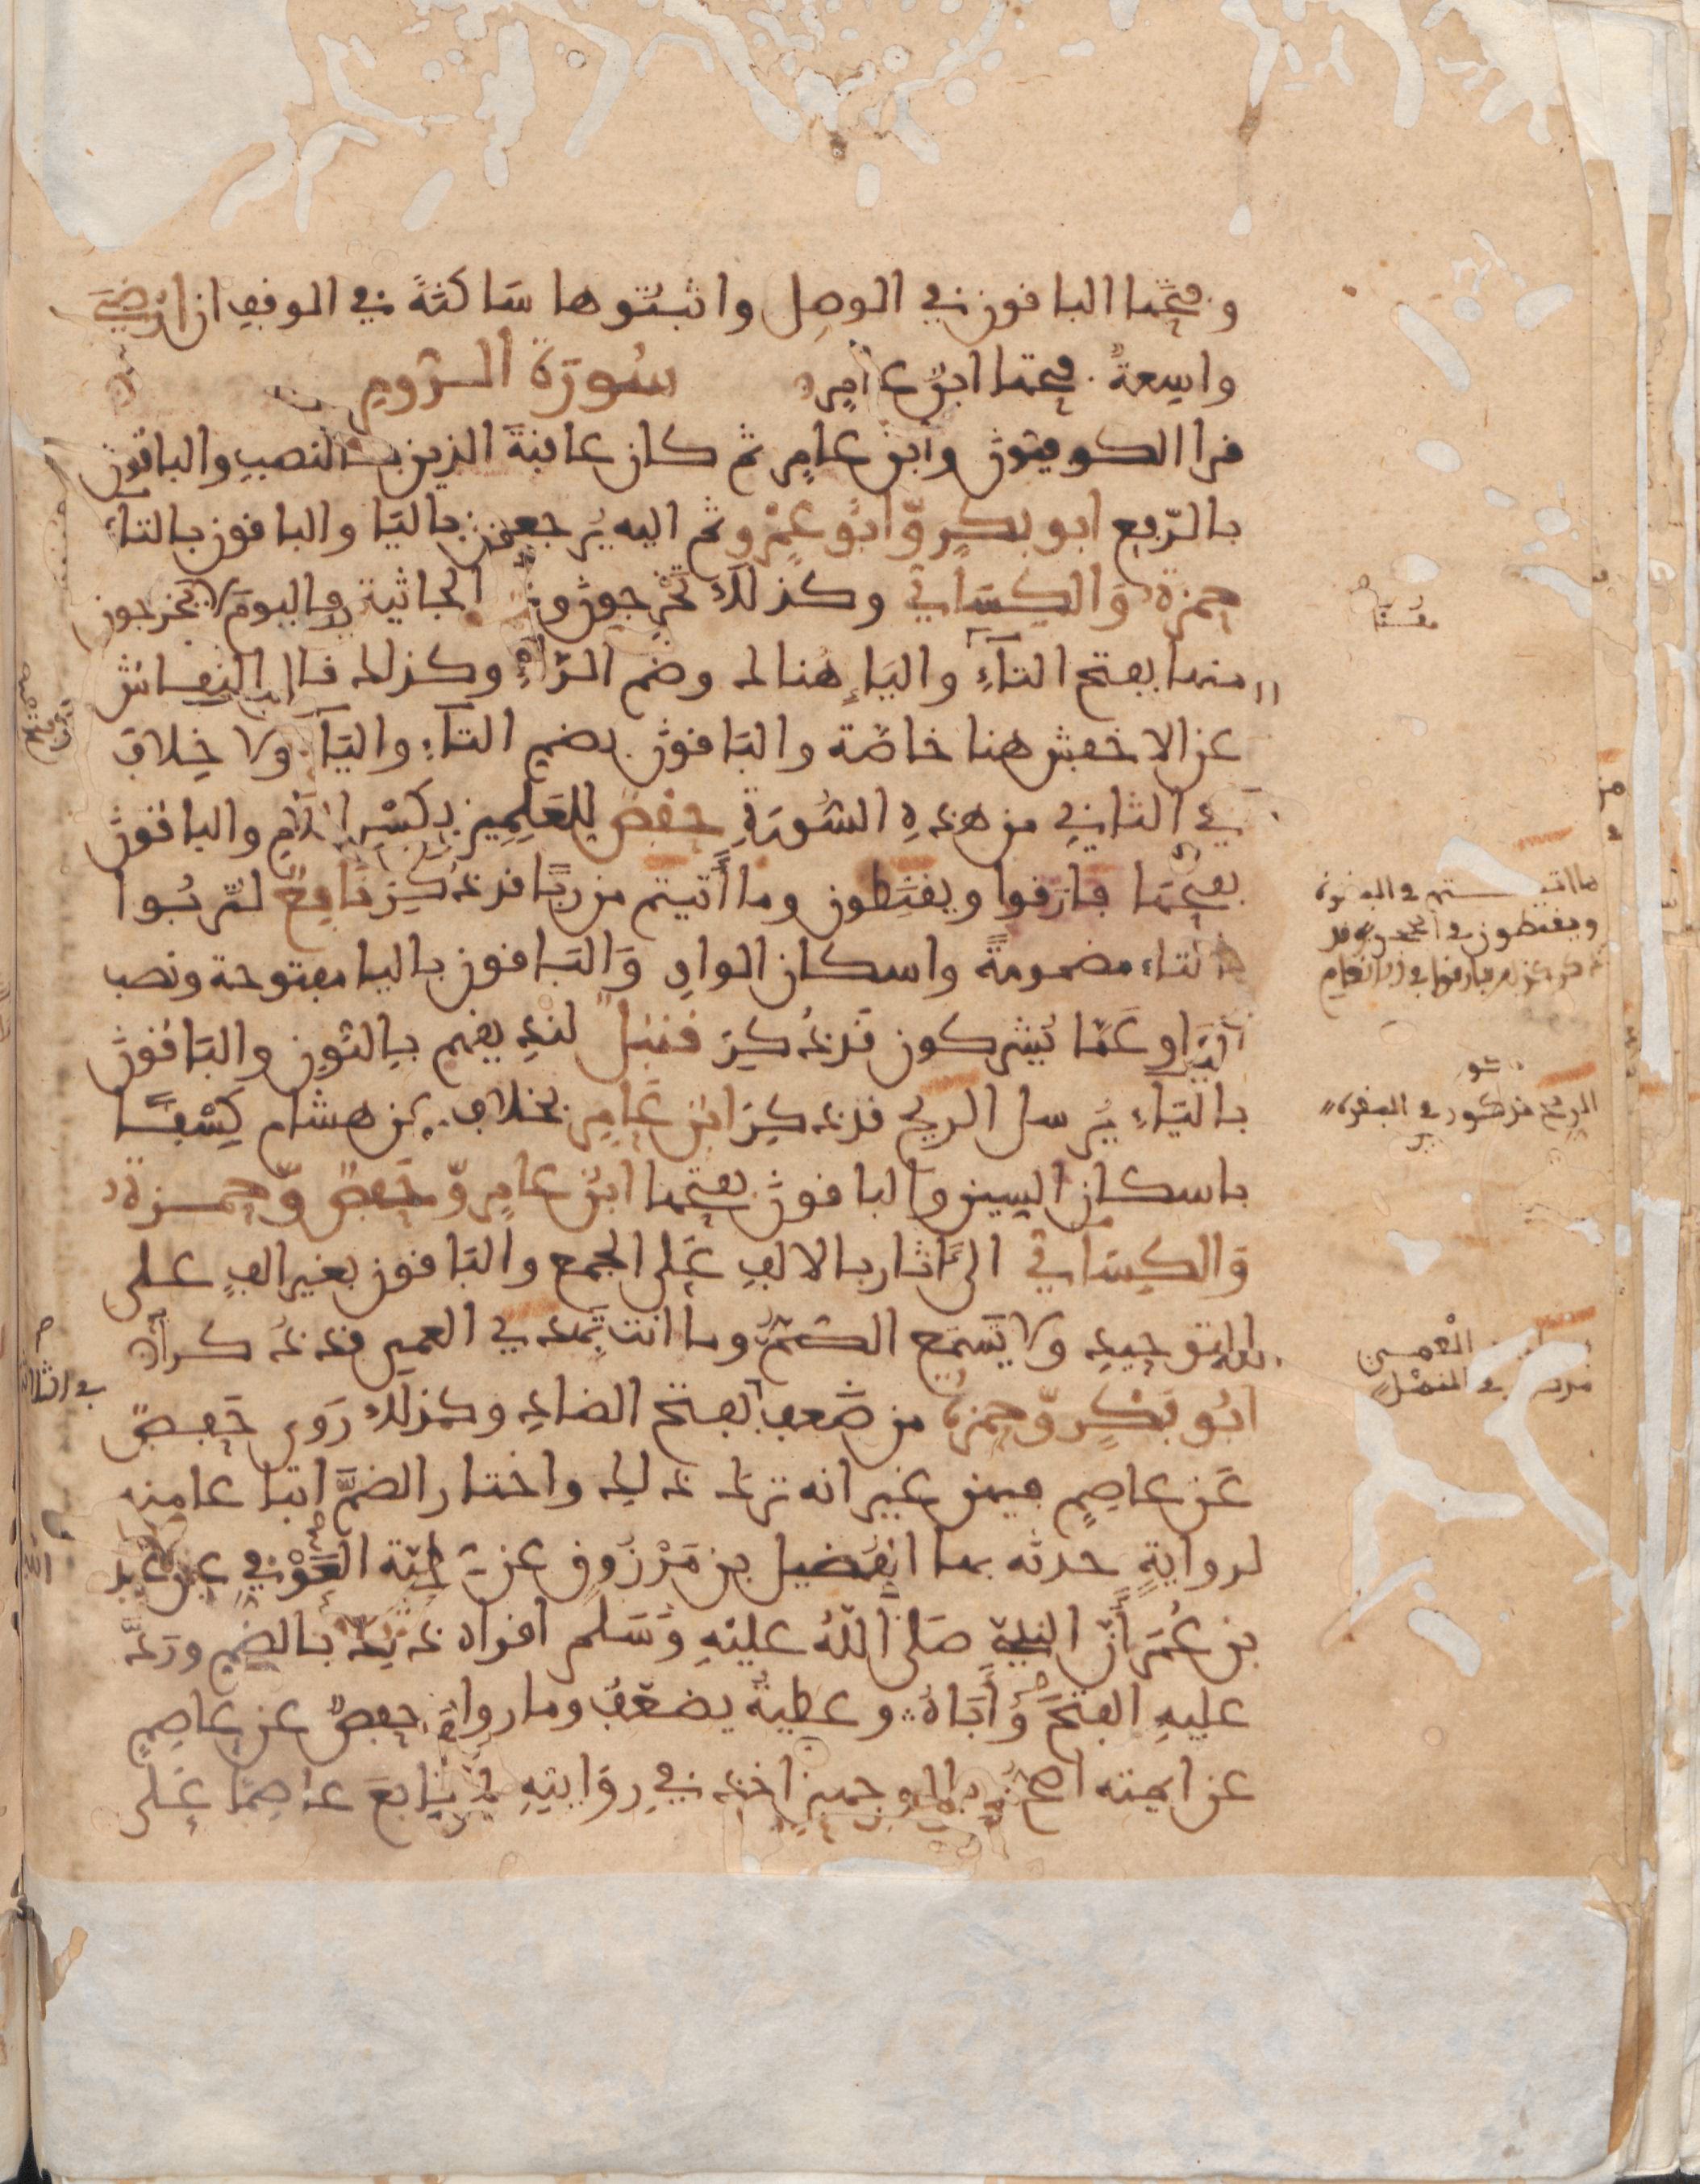 وفتحها الباقون في الوصل واثبتوها ساكنة في الوقف ان ارضي
واسعة فتحها ابن عامر سورة الروم
قرا الكوفيون وابن عامر ثم كان عاقبة الذين بالنصب والباقون
بالرفع ابو بكر وابو عمرو ثم اليه يرجعون باليا والباقون بالتاء
حمزة والكساني وكذلك تخرجون وفي الجاثية فاليوم لا يخرجون
منها بفتح التاء والياء هنالك وضم الراء وكذلك قال النقاش
عن الاخفش هنا خاصة والباقون بضم التاء والياء ولا خلاف
في الثاني من هذه السورة حفص للعلمين بكسر اللام والباقون
بفتحها فارقوا ويقنطون وما أتيتم من ربا قد ذكر نافع لتربوا
بالتاء مضمومة واسكان الواو والباقون باليا مفتوحة ونصب
الواو عما يشركون قد ذكر قنبل لنذيقهم بالنون والباقون
بالياء يرسل الريح قد ذكر ابن عامر بخلاف عن هشام كسفا
باسكان السين والباقون بفتحها ابن عامر وحفص وحمزة
والكساني الى ءاثار بالالف على الجمع والباقون بغير الف على
التوحيد ولا يسمع الصم وما انت تهدي العمي قد ذكرا
ابو بكر وحمزة من ضعف بفتح الضاد وكذلك روى حفص
عن عاصم فيهن غير انه ترك ذلك واختار الضم اتباعا منه
لرواية حدثه بها الفضيل بن مرزوق عن عطية العوفي عن عبد
بن عمر أن النبي صلى الله عليه وسلم اقراه ذلك بالضم ورد
عليه الفتح وأباه وعطية يضعف وما رواه حفص عن عاصم
عن ايمته اصح وبالوجهين اخذ في روايته لاتابع عاصما على
ويقنطون في الحجر وقد
الريح مذكور في البقرة
العمي
في النمل